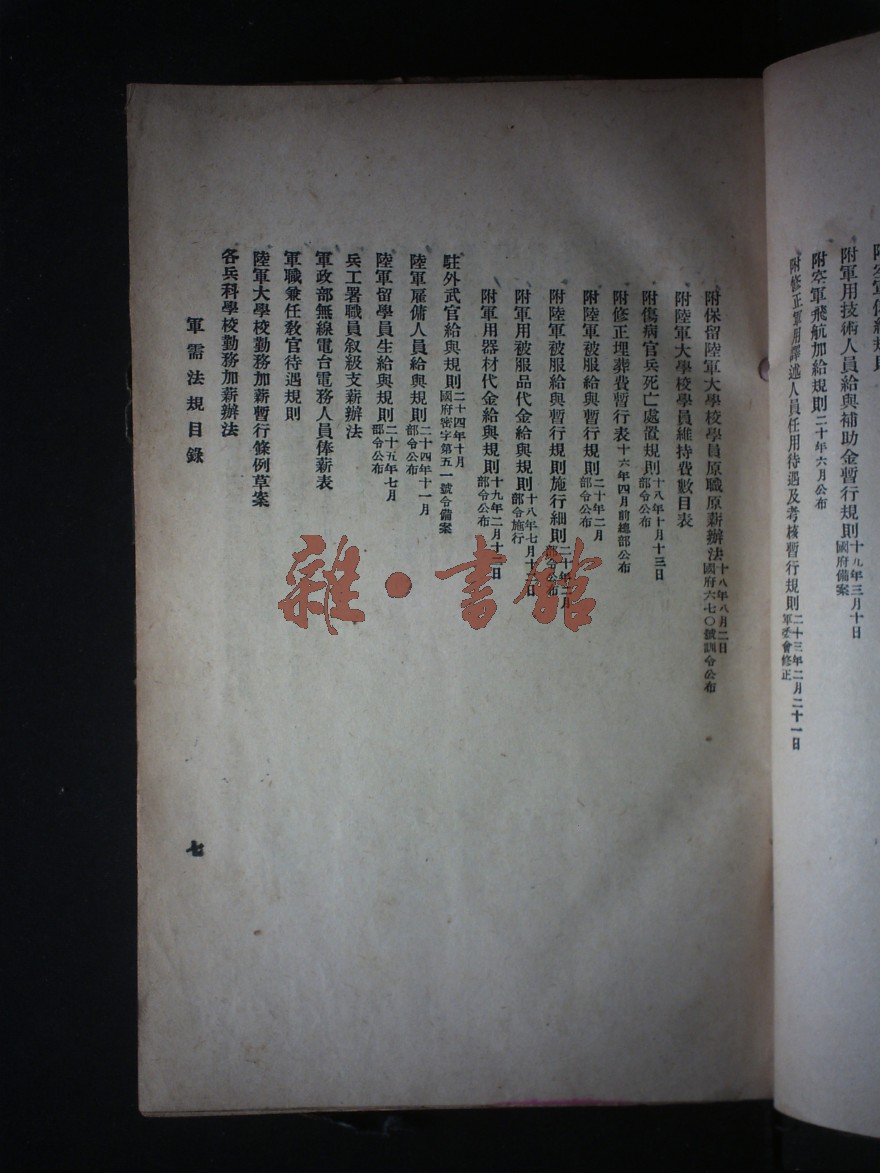 附軍用技術人員給與補助金暫行規則十九年三月十日國府備案
附空軍飛航加給規則二十年六月公布
附修正軍用譯述人員任用待遇及考核暫行規則二十三年二月二十一日軍委會修正
附保留陸軍大學校學員原職原薪辦法十八年八月二日國府六七〇號訓令公布
附陸軍大學校學員維持費數目表
附傷病官兵死亡處置規則十八年十月十三日部令公布
附修正埋葬費暫行表十六年四月前總部公布
附陸軍被服給與暫行規則二十年二月部令公布
附陸軍被服給與暫行規則施行細則二十年二月部令公布
附軍用被服品代金給與規則十八年七月十三日部令施行
附軍用器材代金給與規則十九年二月十二日部令公布
駐外武官給與規則二十四年十月國府密字第五一號令備案
陸軍雇傭人員給與規則二十四年十一月部令公布
陸軍留學員生給與規則二十五年七月部令公布
兵工署職員敘級支薪辦法
軍政部無線電台電務人員俸薪表
軍職兼任教官待遇規則
陸軍大學校勤務加薪暫行條例草案
各兵科學校勤務加薪辦法
軍需法規目錄
七
雜·書館